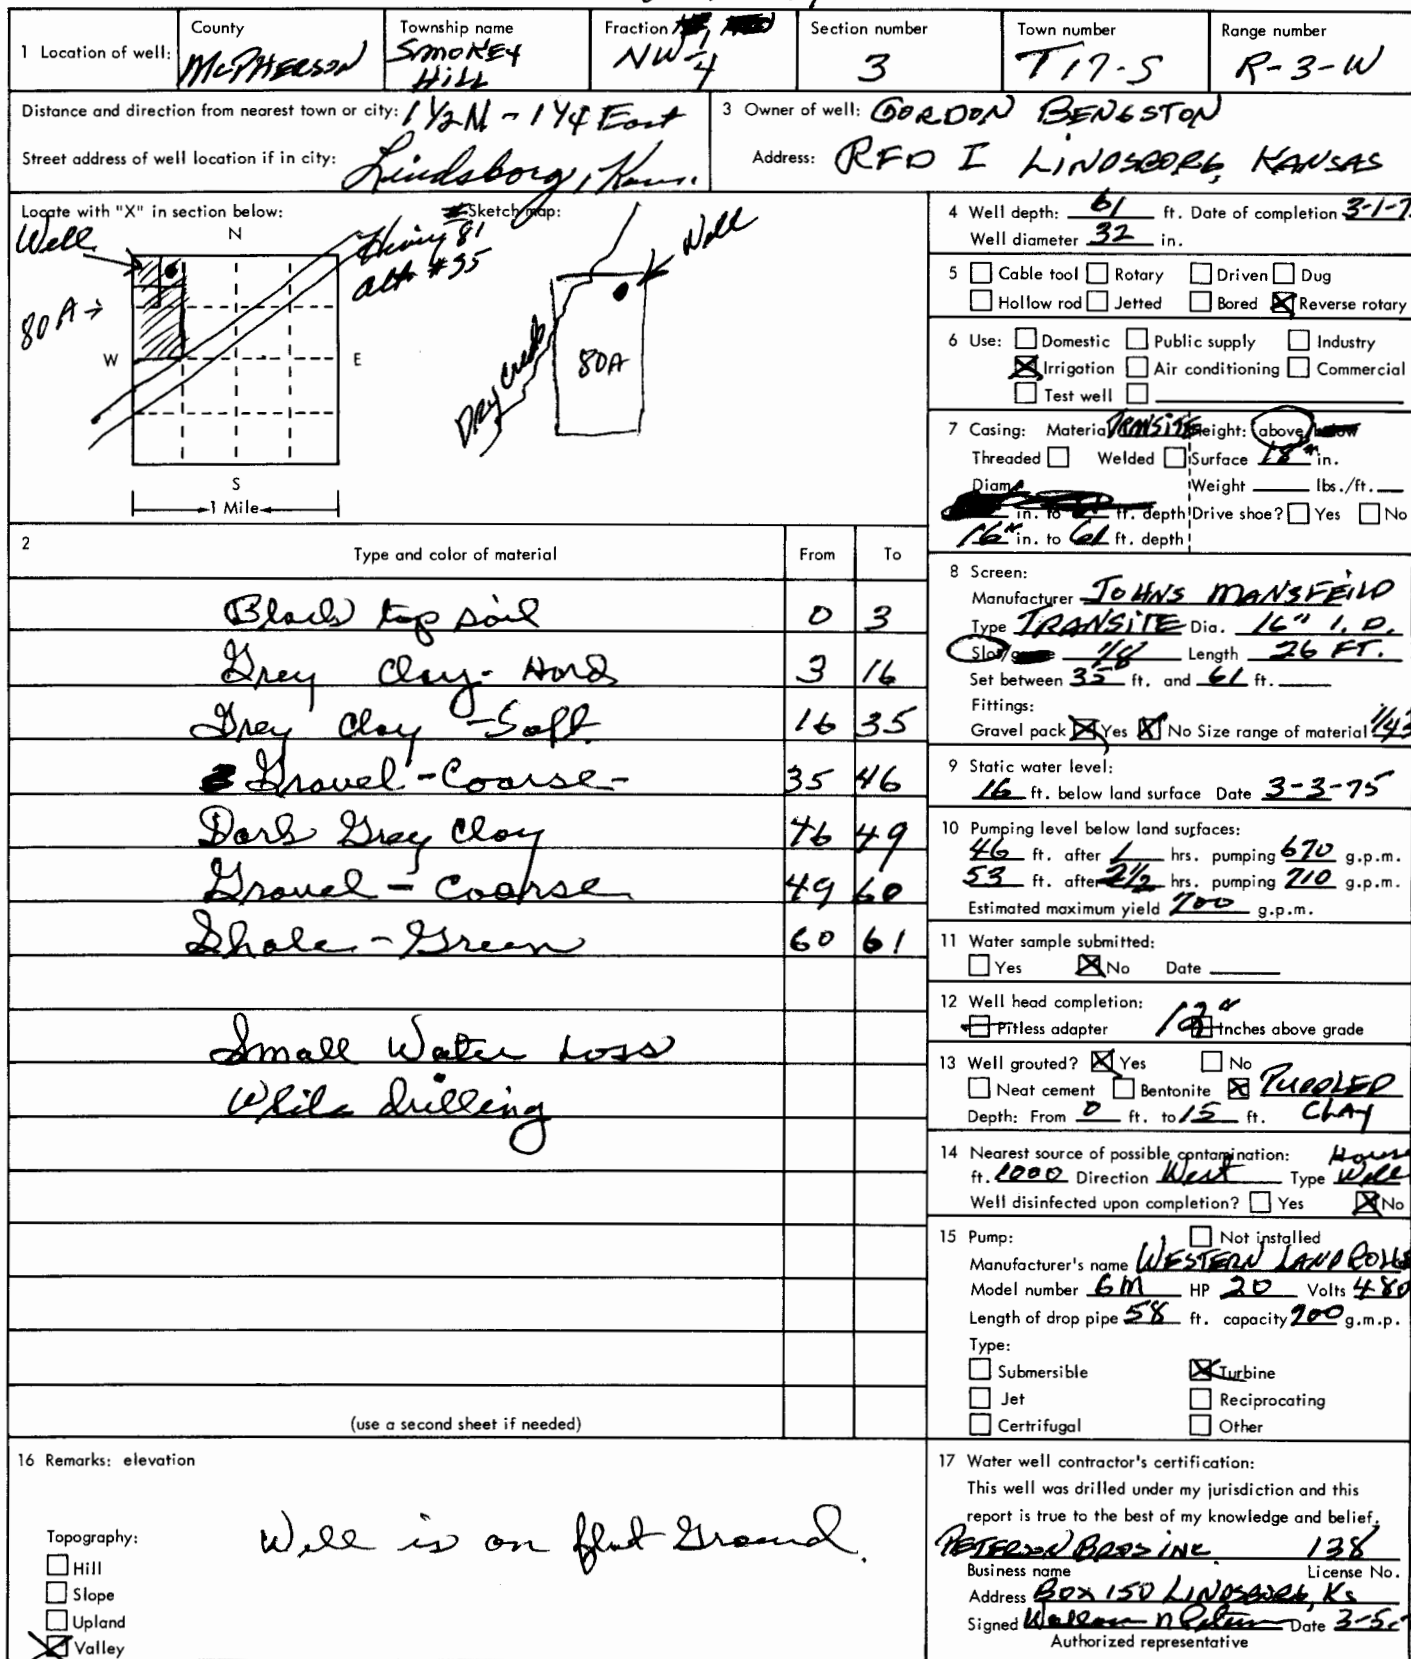 1 Location of well:
County
McPHERSON
Township name
SMOKEY
HiLL
Fraction
NW 1/4
Section number
3
Town number
T17-S
Range number
R-3-W
Distance and direction from nearest town or city: 1 1/2 M - 1 1/4 East
Street address of well location if in city: Lindsborg, Kans.
3 Owner of well: GORDON BENGSTON
Address: RFD I LINDSBORG, KANSAS
Locate with "X" in section below:
Sketch map:
Well
N
Hiway 81
Alt #35
Well
80A →
W
E
80A
Dry Creek
S
1 Mile
2
Type and color of material
From
To
Black top soil 0 3
Grey Clay - Hard 3 16
Grey Clay - Soft 16 35
Gravel - Coarse - 35 46
Dark Grey Clay 46 49
Gravel - Coarse 49 60
Shale - Green 60 61
Small Water Loss
While drilling
(use a second sheet if needed)
4 Well depth: 61 ft. Date of completion 3-1-7
Well diameter 32 in.
5 Cable tool Rotary Driven Dug
Hollow rod Jetted Bored Reverse rotary
6 Use: Domestic Public supply Industry
Irrigation Air conditioning Commercial
Test well
7 Casing: Material TRANSITE Height: above below
Threaded Welded Surface 18" in.
Diam.
Weight lbs./ft.
in. to ft. depth Drive shoe? Yes No
16" in. to 61 ft. depth
8 Screen:
Manufacturer JOHNS MANSFEILD
Type TRANSITE Dia. 16" I.D.
Slot 1/8 Length 26 FT.
Set between 35 ft. and 61 ft.
Fittings:
Gravel pack Yes No Size range of material
9 Static water level:
16 ft. below land surface Date 3-3-75
10 Pumping level below land surfaces:
46 ft. after 1 hrs. pumping 670 g.p.m.
53 ft. after 2 1/2 hrs. pumping 710 g.p.m.
Estimated maximum yield 700 g.p.m.
11 Water sample submitted:
Yes No Date
12 Well head completion:
Pitless adapter Inches above grade
13 Well grouted? Yes No
Neat cement Bentonite PUDDLED
Depth: From 0 ft. to 15 ft. CLAY
14 Nearest source of possible contamination: House
ft. 1000 Direction West Type Well
Well disinfected upon completion? Yes No
15 Pump: Not installed
Manufacturer's name WESTERN LAND ROLLE
Model number 6M HP 20 Volts 480
Length of drop pipe 58 ft. capacity 700 g.m.p.
Type:
Submersible Turbine
Jet Reciprocating
Certrifugal Other
16 Remarks: elevation
Well is on flat Ground.
Topography:
Hill
Slope
Upland
Valley
17 Water well contractor's certification:
This well was drilled under my jurisdiction and this
report is true to the best of my knowledge and belief.
PETERSON BROS INC 138
Business name License No.
Address BOX 150 LINDSBORG, Ks
Signed Date 3-5-
Authorized representative